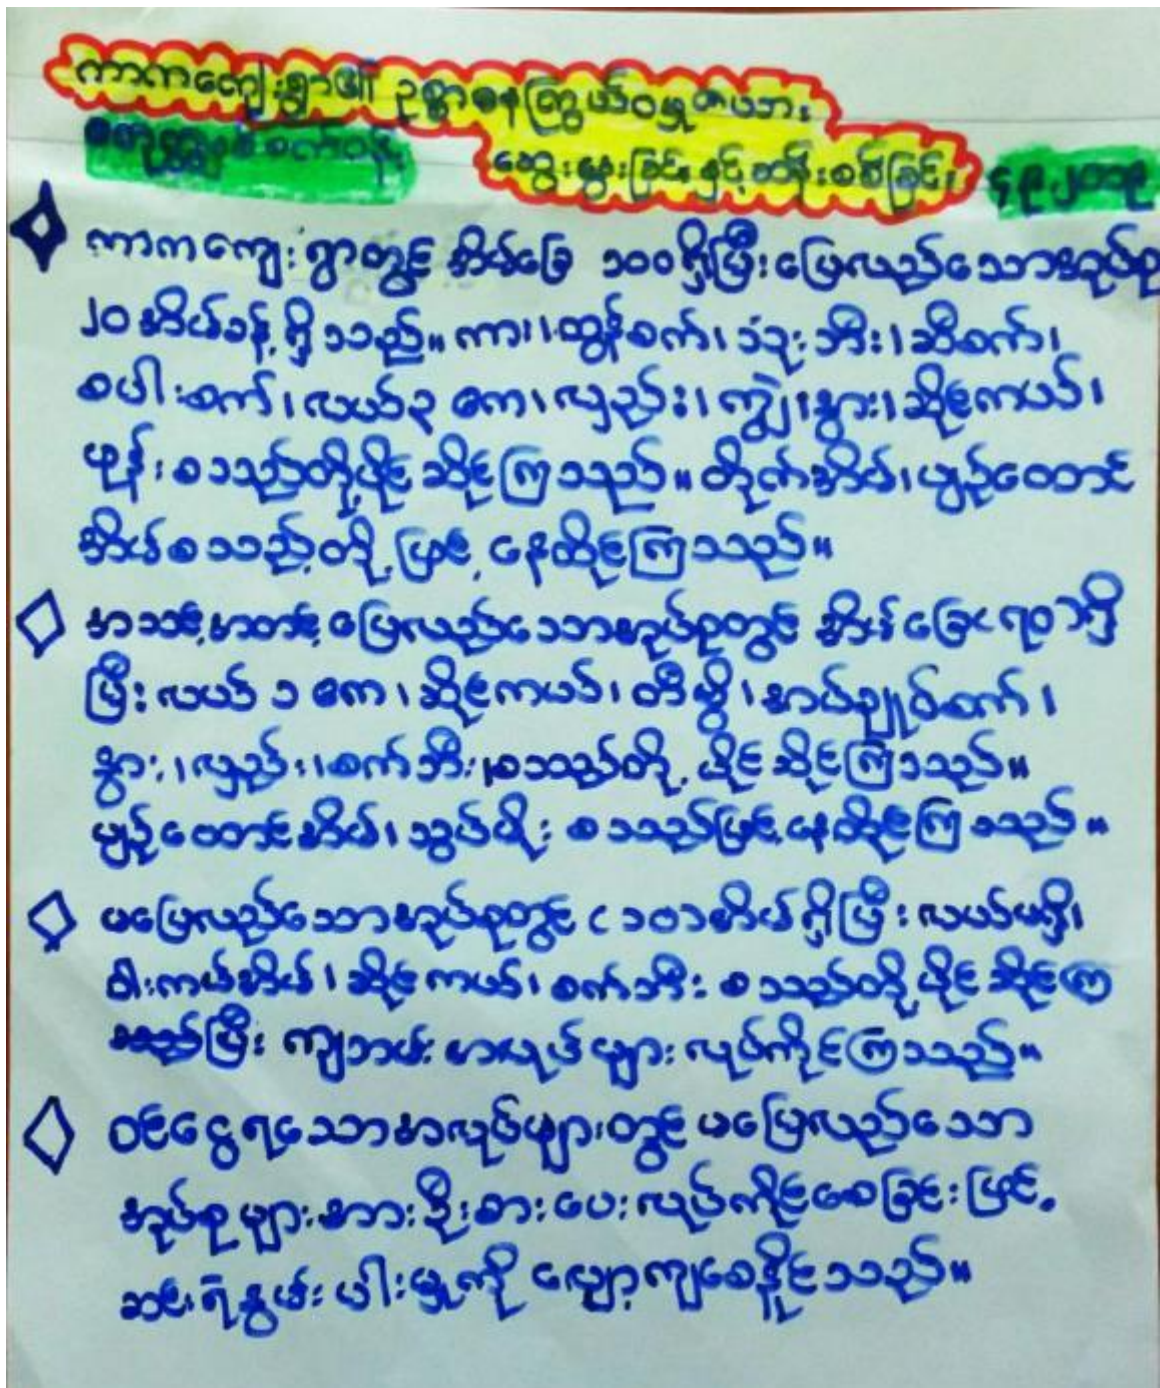 ကာကကျေးရွာ၏ ဥစ္စာဓနကြွယ်ဝမှုအပေါ်
ဆွေးနွေးခြင်းနှင့်ဆန်းစစ်ခြင်း ၄.၉.၂၀၁၉
ကာကကျေးရွာတွင် အိမ်ခြေ ၁၀၀ရှိပြီးပြေလည်သောအုပ်စု
၂၀အိမ်ခန့်ရှိသည်။ ကား၊ထွန်စက်၊သုံးဘီး၊ဆီစက်၊
စပါးစက်၊လယ်၃ ဧက၊လှည်း၊ကျွဲ၊နွား၊ဆိုင်ကယ်၊
ဖုန်းစသည်တို့ပိုင်ဆိုင်ကြသည်။တိုက်အိမ်၊ပျဉ်ထောင်
အိမ်စသည့်တို့ဖြင့်နေထိုင်ကြသည်။
အသင့်အတင့်ပြေလည်သောအုပ်စုတွင် အိမ်ခြေ(၇၀)ရှိ
ပြီးလယ် ၁ ဧက၊ဆိုင်ကယ်၊တီဗွီ၊အပ်ချုပ်စက်၊
နွား၊လှည်း၊စက်ဘီး၊စသည်တို့ပိုင်ဆိုင်ကြသည်။
ပျဉ်ထောင်အိမ်၊သွပ်မိုးစသည်ဖြင့်နေထိုင်ကြသည်။
မပြေလည်သောအုပ်စုတွင် (၁၀)အိမ်ရှိပြီးလယ်မရှိ၊
ဝါးကပ်အိမ်၊ဆိုင်ကယ်၊စက်ဘီးစသည်တို့ပိုင်ဆိုင်ကြ
ပြီး ကျဘမ်းအလုပ်များလုပ်ကိုင်ကြသည်။
ဝင်ငွေရသောအလုပ်များတွင်မပြေလည်သော
အုပ်စုများအားဦးစားပေးလုပ်ကိုင်စေခြင်းဖြင့်
ဆင်းရဲနွမ်းပါးမှုကို လျော့ကျစေနိုင်သည်။